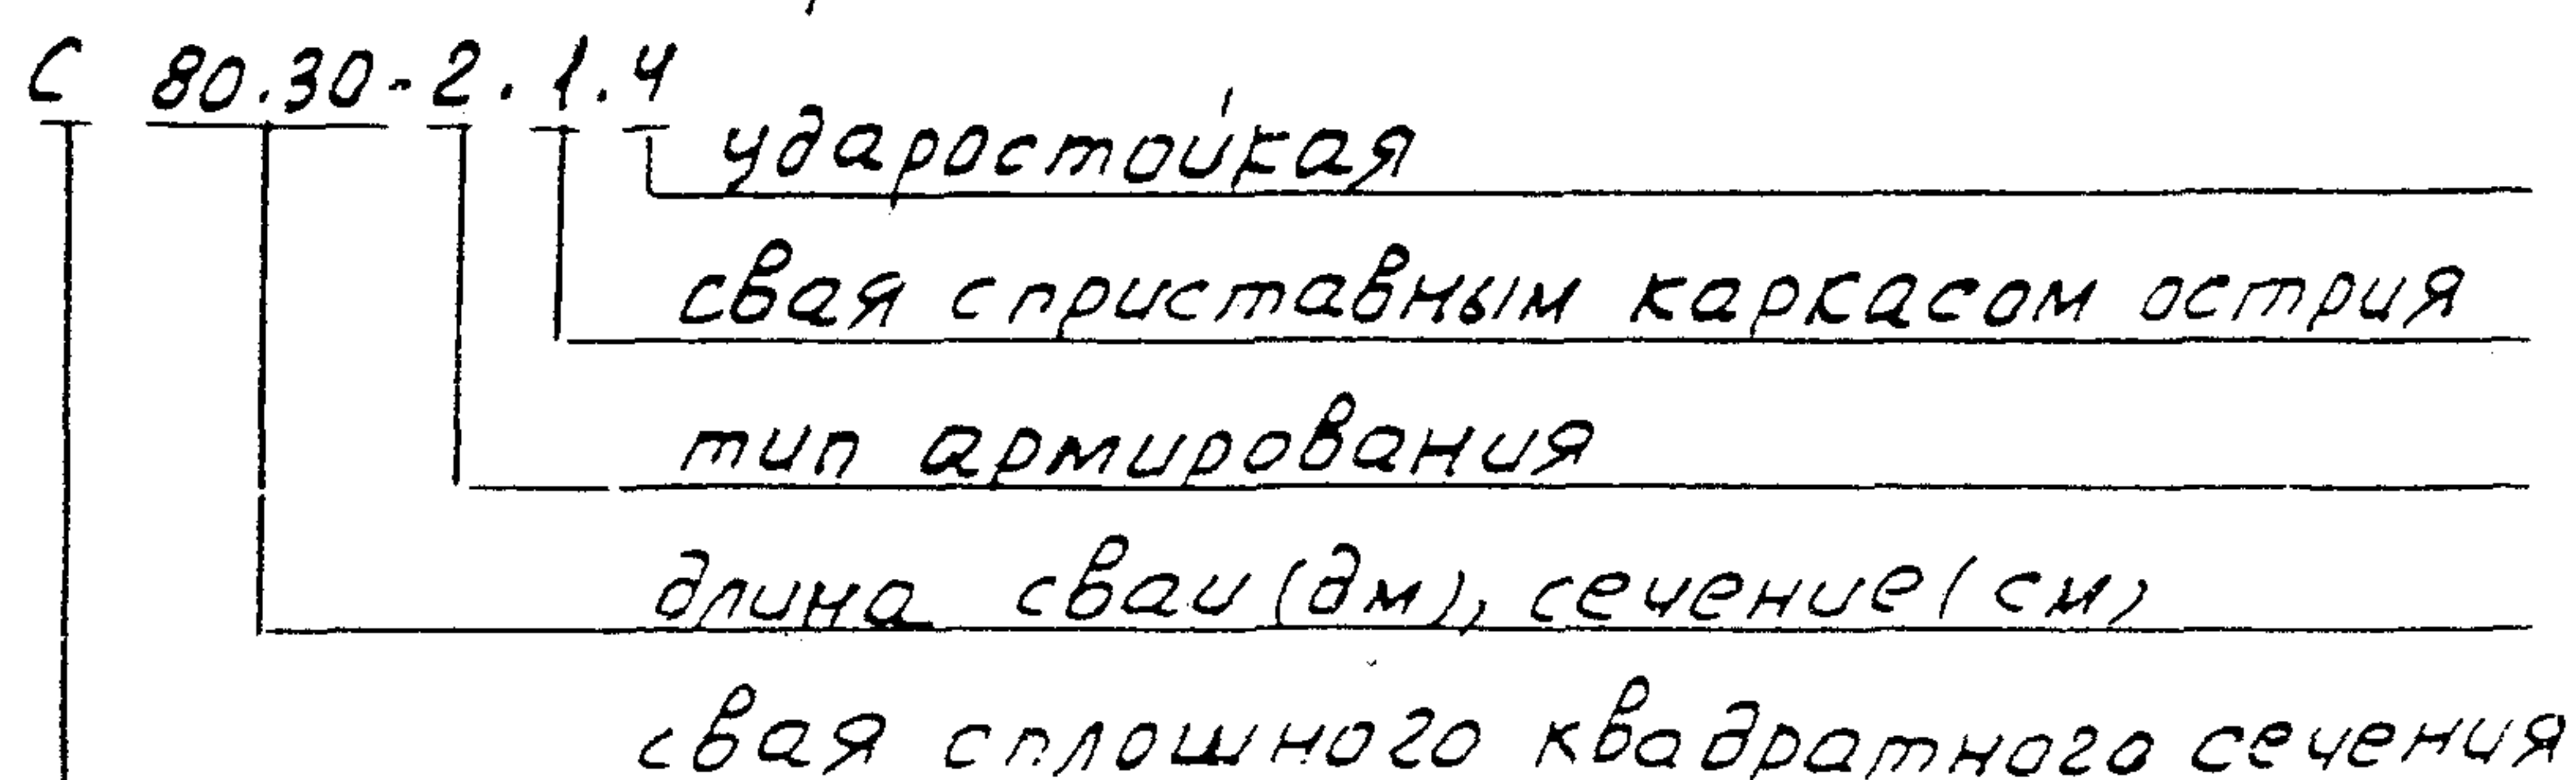 С 80.30-2.1.у
ударостойкая
свая с приставным каркасом острия
тип армирования
длина сваи (дм), сечение (см)
свая сплошного квадратного сечения